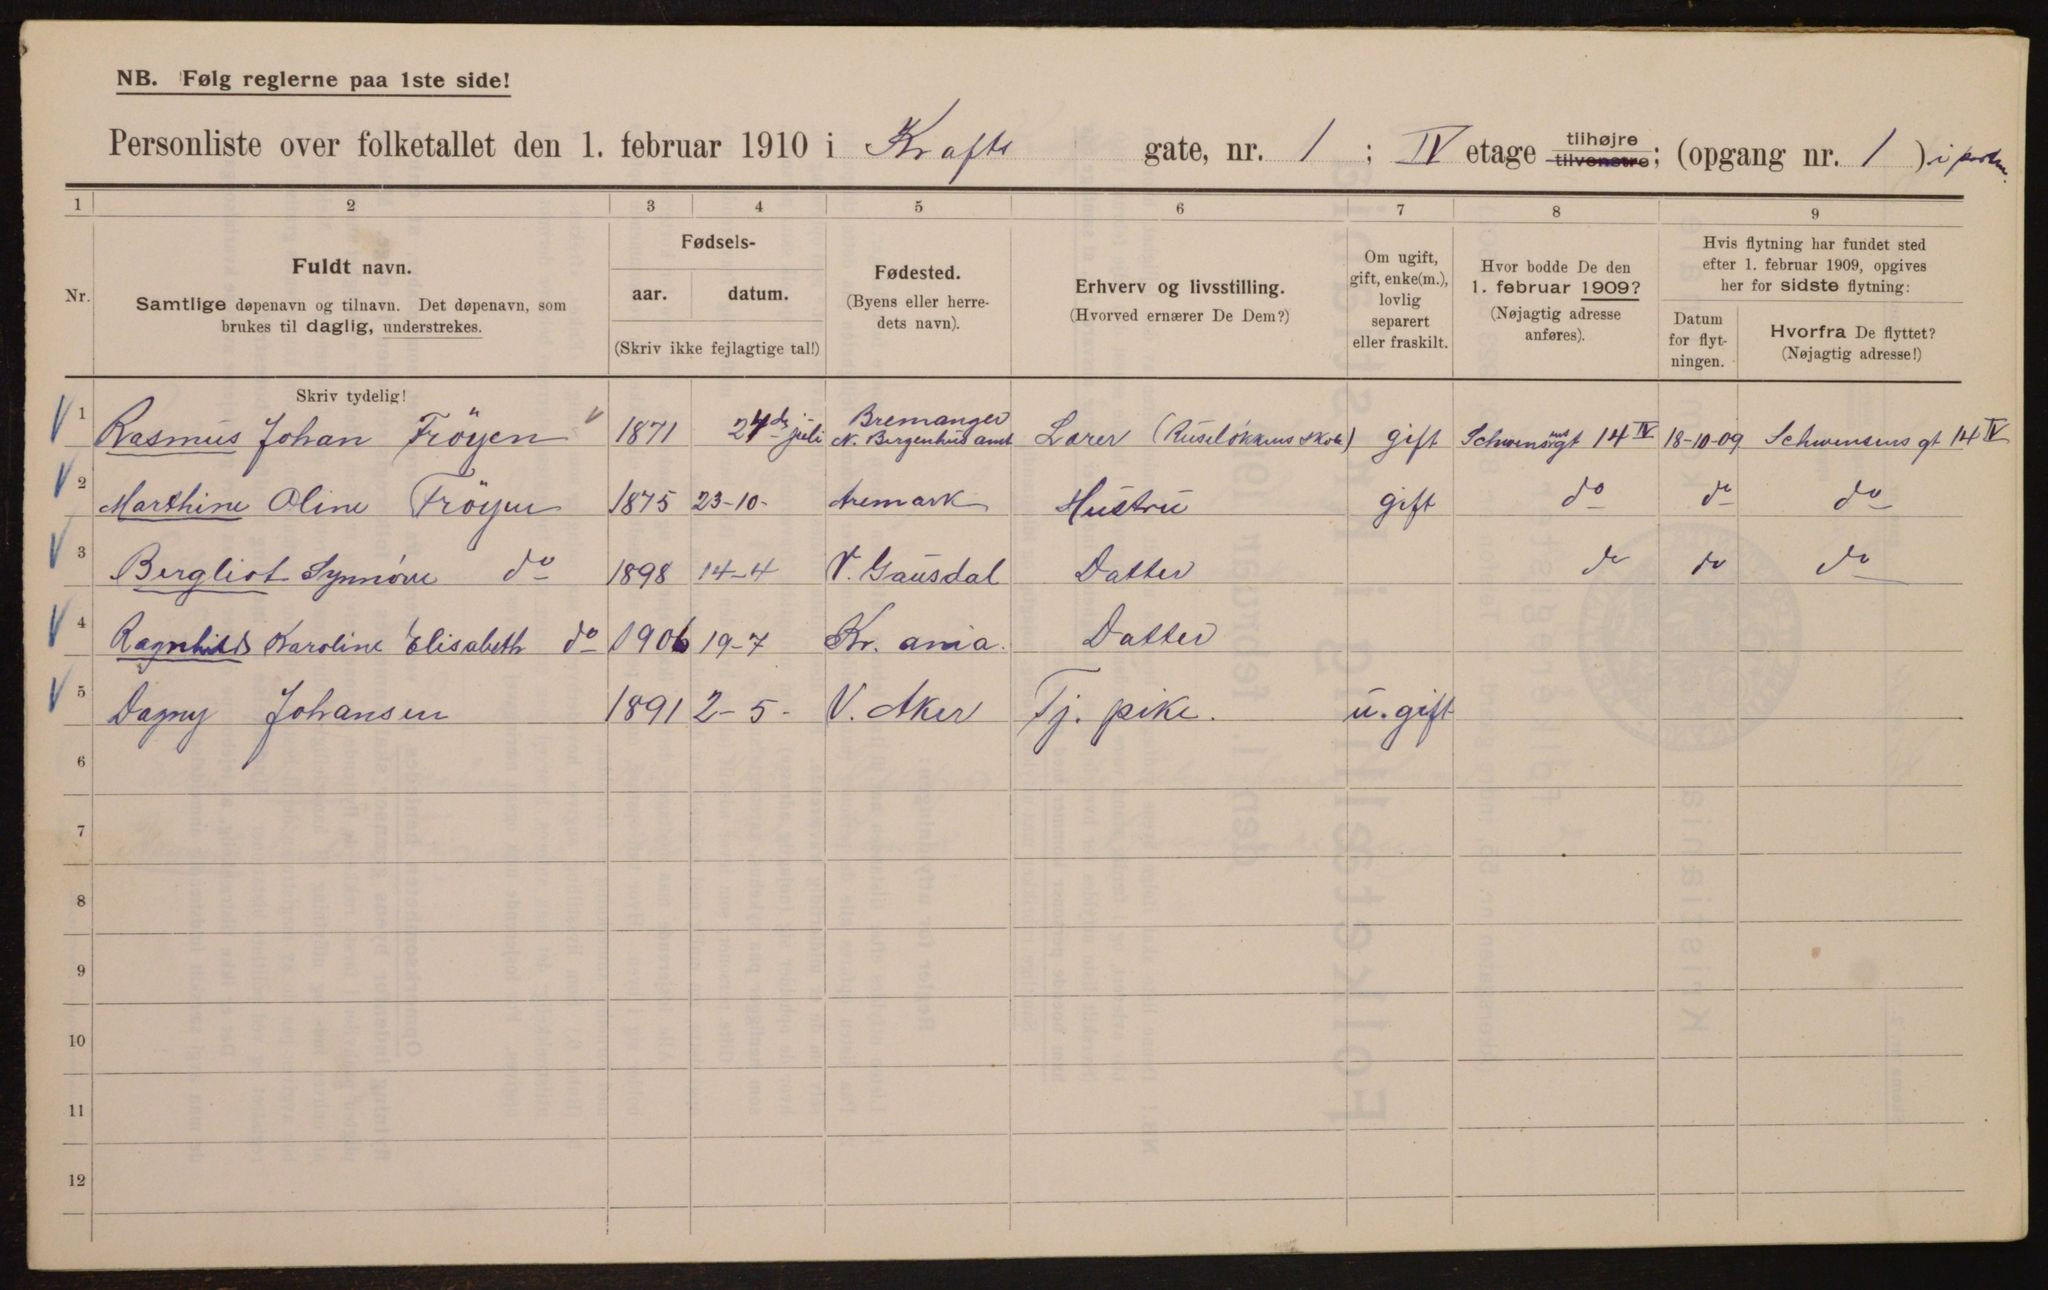 NB. Følg reglerne paa 1ste side!
Personliste over folketallet den 1. februar 1910 i Krafts gate, nr. 1 ; IV etage tilhøjre tilvenstre; (opgang nr. 1 ) i
1 2 3 4 5 6 7 8 9
Nr.
Fuldt navn.
Samtlige døpenavn og tilnavn. Det døpenavn, som
brukes til daglig, understrekes.
Fødsels-
aar. datum.
(Skriv ikke fejlagtige tal!)
Fødested.
(Byens eller herre-
dets navn).
Erhverv og livsstilling.
(Hvorved ernærer De Dem?)
Om ugift,
gift, enke(m.),
lovlig
separert
eller fraskilt.
Hvor bodde De den
1. februar 1909?
(Nøjagtig adresse
anføres).
Hvis flytning har fundet sted
efter 1. februar 1909, opgives
her for sidste flytning:
Datum
for flyt-
ningen.
Hvorfra De flyttet?
(Nøjagtig adresse!)
Skriv tydelig!
1 Rasmus Johan Fröyen 1871 24de juli Bremanger N. Bergenhus amt Lærer (Ruseløkkens skole) gift Schwensensgt 14 IV 18-10-09 Schwensens gt 14 IV
2 Marthine Oline Fröyen 1875 23-10- Aremark Hustru gift do do do
3 Bergliot Synnöve do 1898 14-4 V. Gausdal Datter do do do
4 Ragnhild Karoline Elisabeth do 1906 19-7 Kr. ania. Datter
5 Dagny Johansen 1891 2-5- V. Aker Tj. pike. u. gift
6
7
8
9
10
11
12